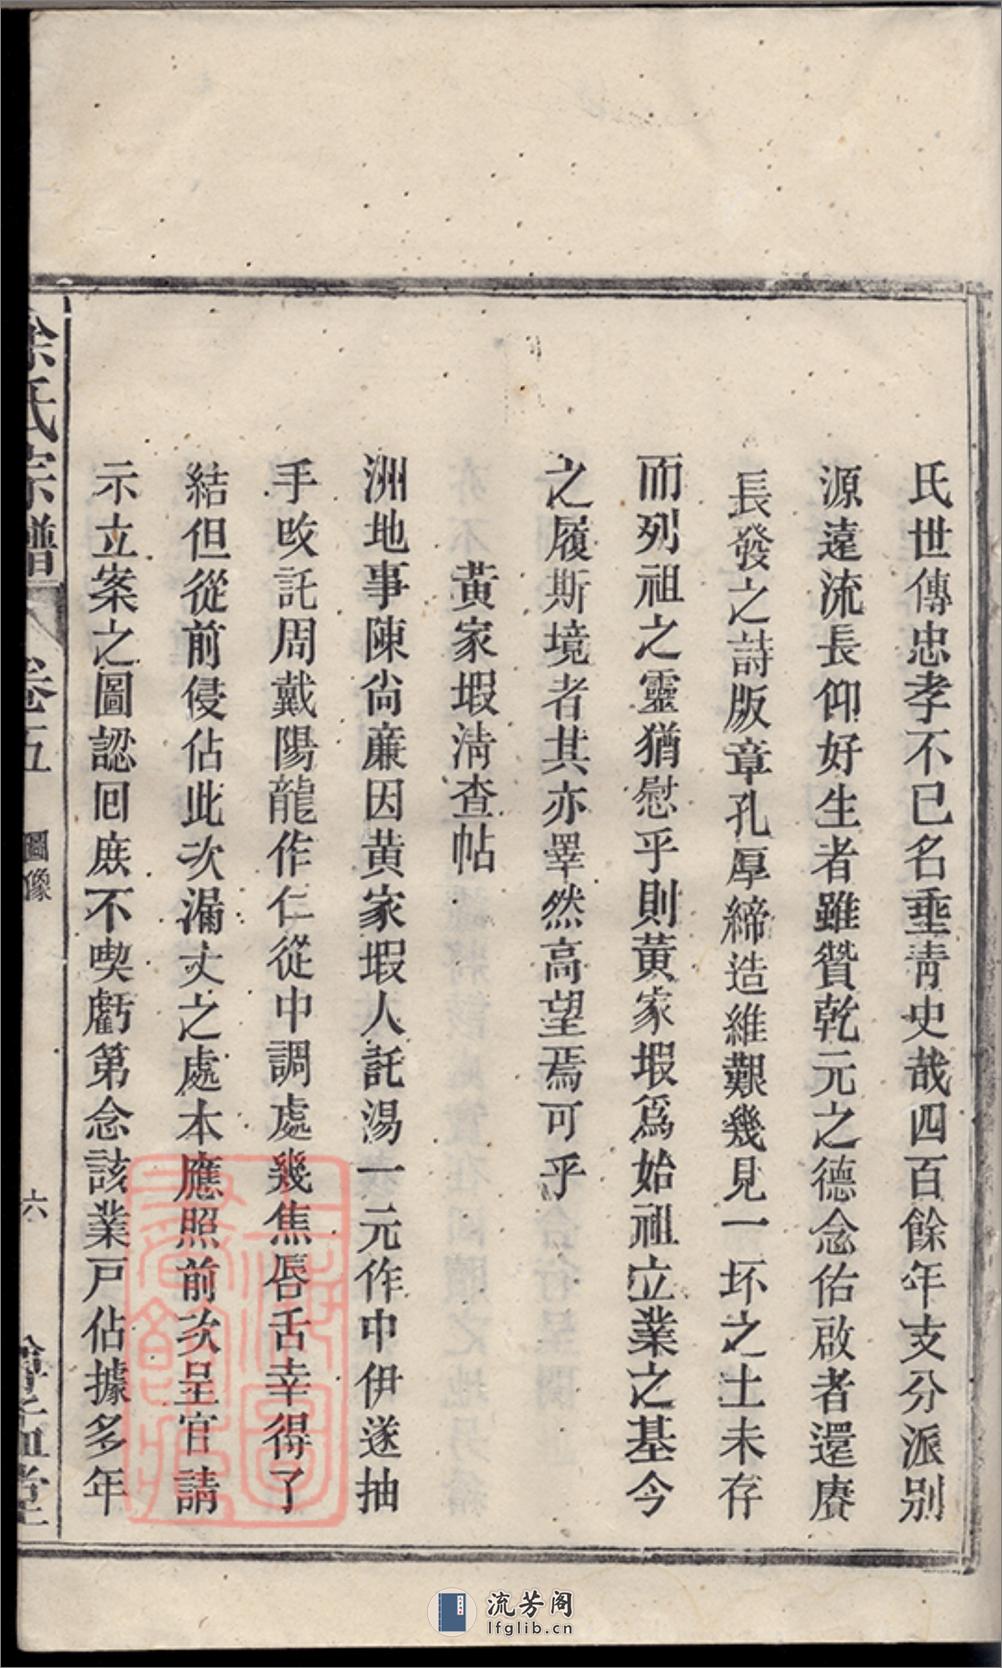 氏世傳忠孝不已名垂靑史哉四百餘年支分派別
源遠流長仰好生者雖贊乾元之德念佑啟者還賡
長發之詩版章孔厚締造維艱幾見一坏之土未存
而列祖之靈猶慰乎則黃家坢爲始祖立業之基今
之履斯境者其亦睪然高望焉可乎
黃家坢淸查帖
洲地事陳尙亷因黃家坢人託湯一元作中伊遂抽
手攺託周戴陽龍作仁從中調處幾焦唇舌幸得了
結但從前侵佔此次漏丈之處本應照前次呈官請
示立案之圖認囘庻不喫虧第念該業戸佔據多年
徐氏宗譜 卷五 圖像 六
流芳阁
lfglib.cn